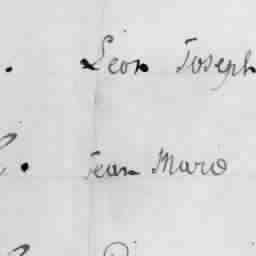 Léon Joseph
Jean Marie